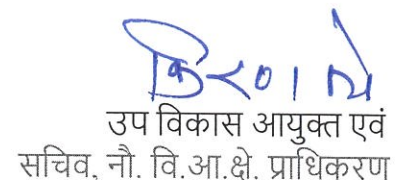 उप विकास आयुक्त एवं
सचिव, नौ. वि.आ.क्षे. प्राधिकरण